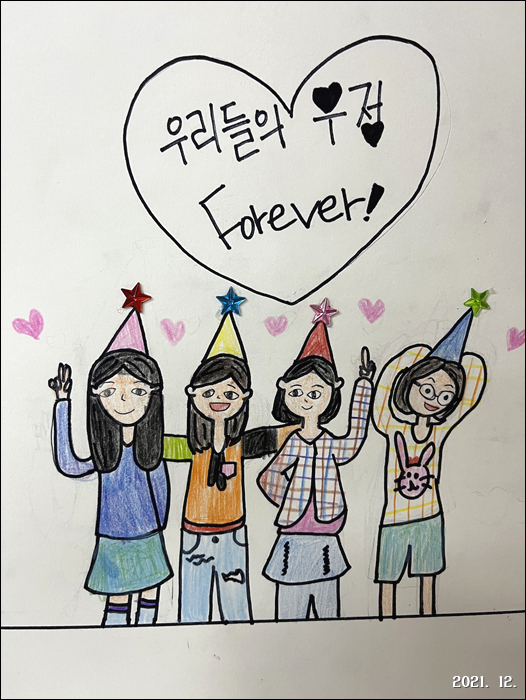 우리들의 우정
Forever!
2021. 12.